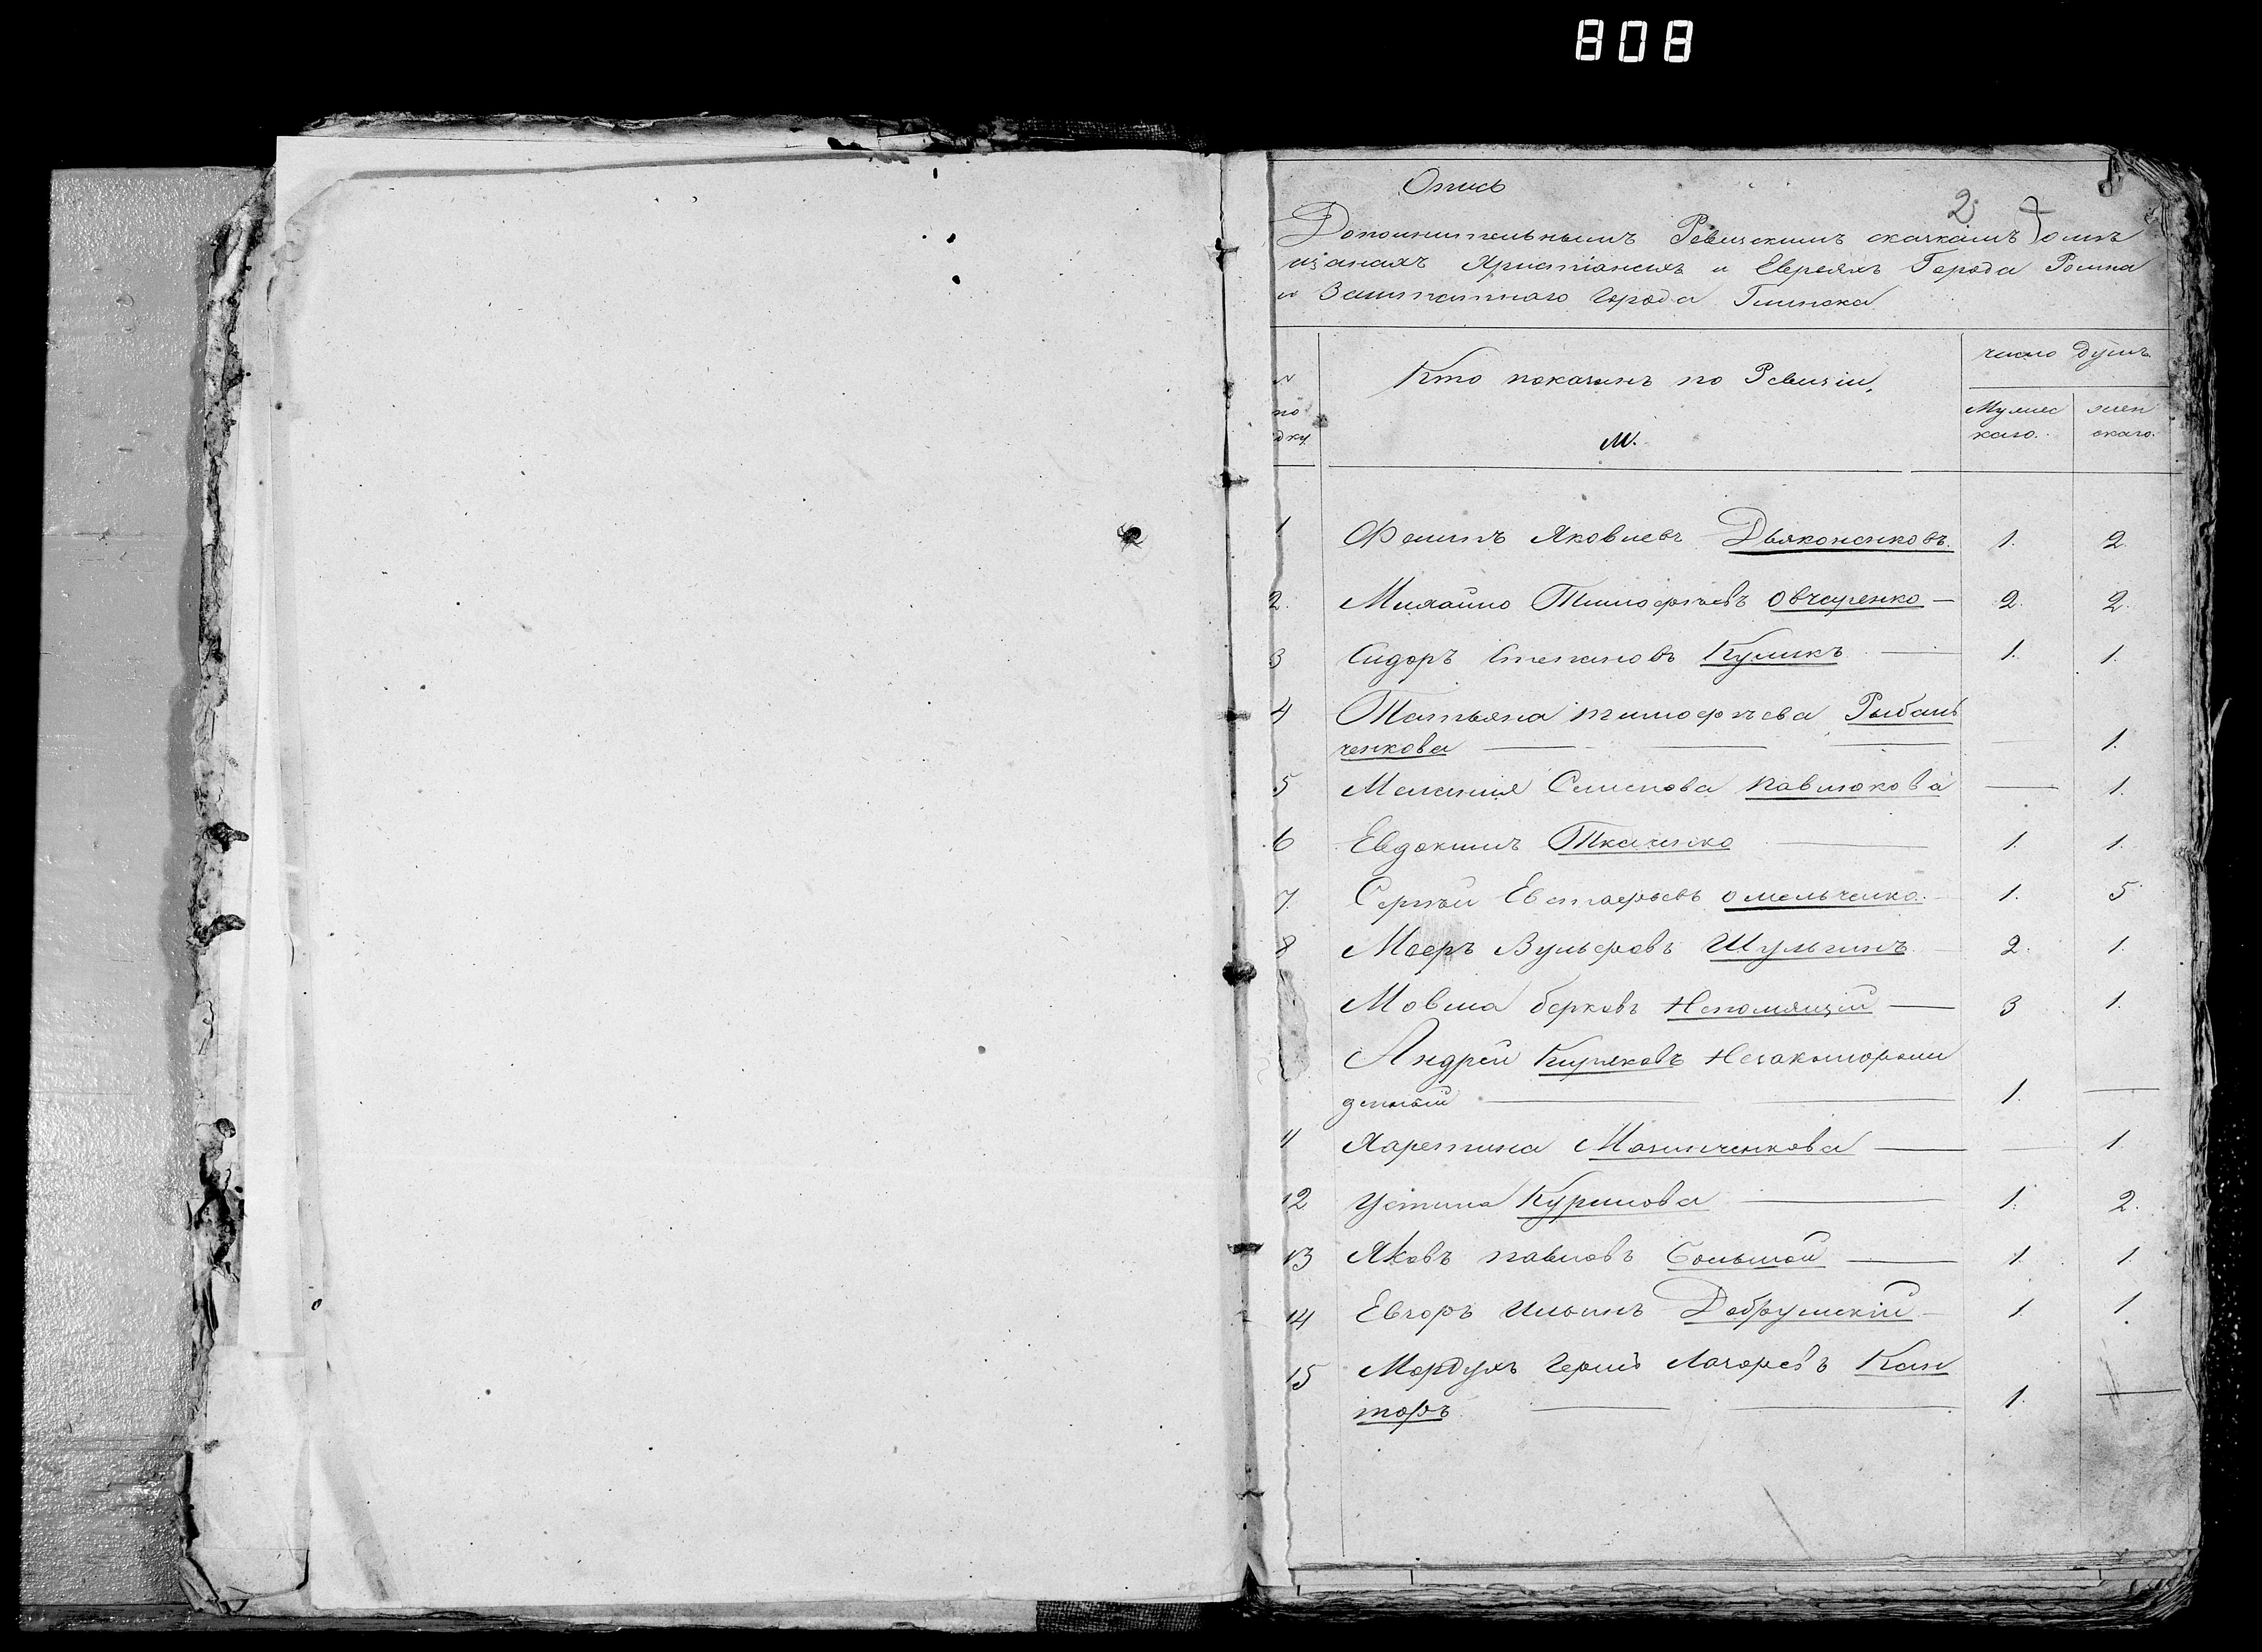 808
Опись
2
Дополнительнымъ Ревизскимъ сказкамъ о мѣ
щанахъ Христіанахъ и Евреяхъ Города Ромна
и Заштатнаго Города Глинска
N
по
дку
Кто показанъ по Ревизіи.
М.
число душъ
Мужес
каго.
жен
скаго.
1 Филипъ Яковлевъ Дьяконенковъ. 1. 2
2. Михайло Тимофѣевъ Овчаренко — 2. 2.
3 Сидоръ Степановъ Куликъ — 1. 1.
4 Татьяна Тимофѣева Рыбаль
ченкова — — — — 1.
5 Мелания Семенова Павлюкова — 1.
6 Евдокимъ Ткаченко — 1. 1.
7. Сергѣй Евстафьевъ Омельченко. 1. 5
8 Мееръ Вульфовъ Шульгинъ 2. 1.
Мовша Берковъ Непомящій — 3 1.
Андрей Куряковъ Незаконорож
денный — — 1. —
11 Харетина Мохинченкова — — 1.
12 Устина Курилова — 1. 2.
13 Яковъ Павловъ Больмой — 1 1.
14 Евгоръ Ильинъ Добружскій 1 1.
15 Мордухъ Герцъ Лазаревъ Кан
торъ — — 1. —